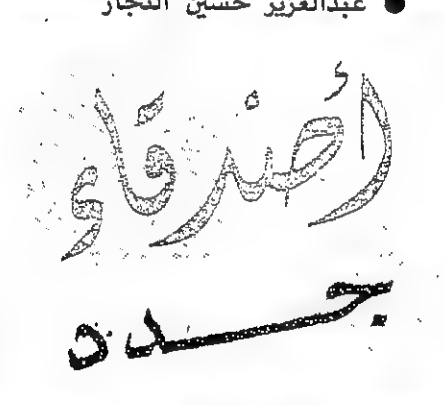 ● عبدالعزيز حسين النجار
أصدقاء
جدد